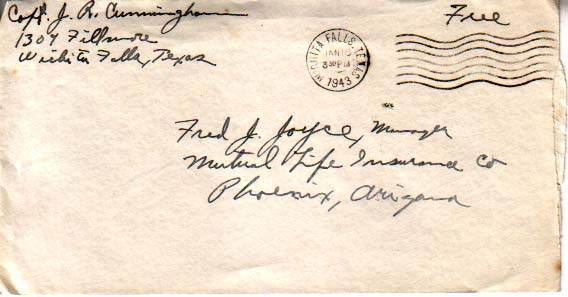 Capt. J. R. Cunningham
1307 Fillmore
Wichita Falls, Texas
Free
WICHITA FALLS, TEXAS
JAN 15
3 30 PM
1943
Fred J. Joyce, Manager
Mutual Life Insurance Co
Phoenix, Arizona